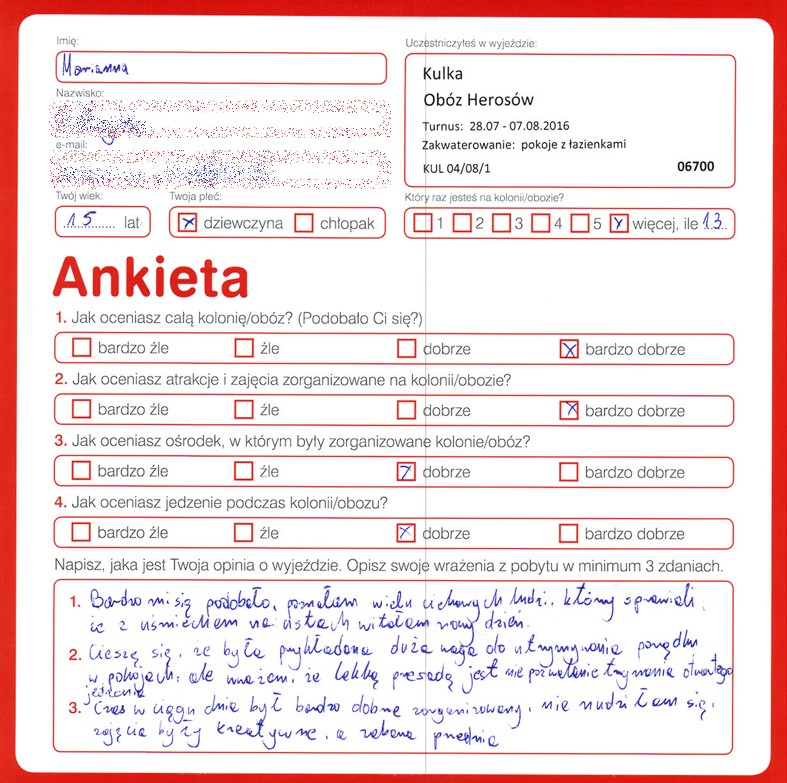 Imię:
Marianna
Nazwisko:
e-mail:
Uczestniczyłeś w wyjeździe:
Kulka
Obóz Herosów
Turnus: 28.07 - 07.08.2016
Zakwaterowanie: pokoje z łazienkami
KUL 04/08/1 06700
Twój wiek:
15 lat
Twoja płeć:
dziewczyna chłopak
Który raz jesteś na kolonii/obozie?
1 2 3 4 5 więcej, ile 13
Ankieta
1. Jak oceniasz całą kolonię/obóz? (Podobało Ci się?)
bardzo źle źle dobrze bardzo dobrze
2. Jak oceniasz atrakcje i zajęcia zorganizowane na kolonii/obozie?
bardzo źle źle dobrze bardzo dobrze
3. Jak oceniasz ośrodek, w którym były zorganizowane kolonie/obóz?
bardzo źle źle dobrze bardzo dobrze
4. Jak oceniasz jedzenie podczas kolonii/obozu?
bardzo źle źle dobrze bardzo dobrze
Napisz, jaka jest Twoja opinia o wyjeździe. Opisz swoje wrażenia z pobytu w minimum 3 zdaniach.
1. Bardzo mi się podobało, poznałam wielu ciekawych ludzi, którzy sprawiali,
że z uśmiechem na ustach witałam nowy dzień.
2. Cieszę się, że była przykładana duża waga do utrzymywania porządku
w pokojach, ale uważam, że lekką przesadą jest nie pozwalanie trzymania otwartego
jedzenia
3. Czas w ciągu dnia był bardzo dobrze zorganizowany, nie nudziłam się,
zajęcia były kreatywne, a zabawa przednia